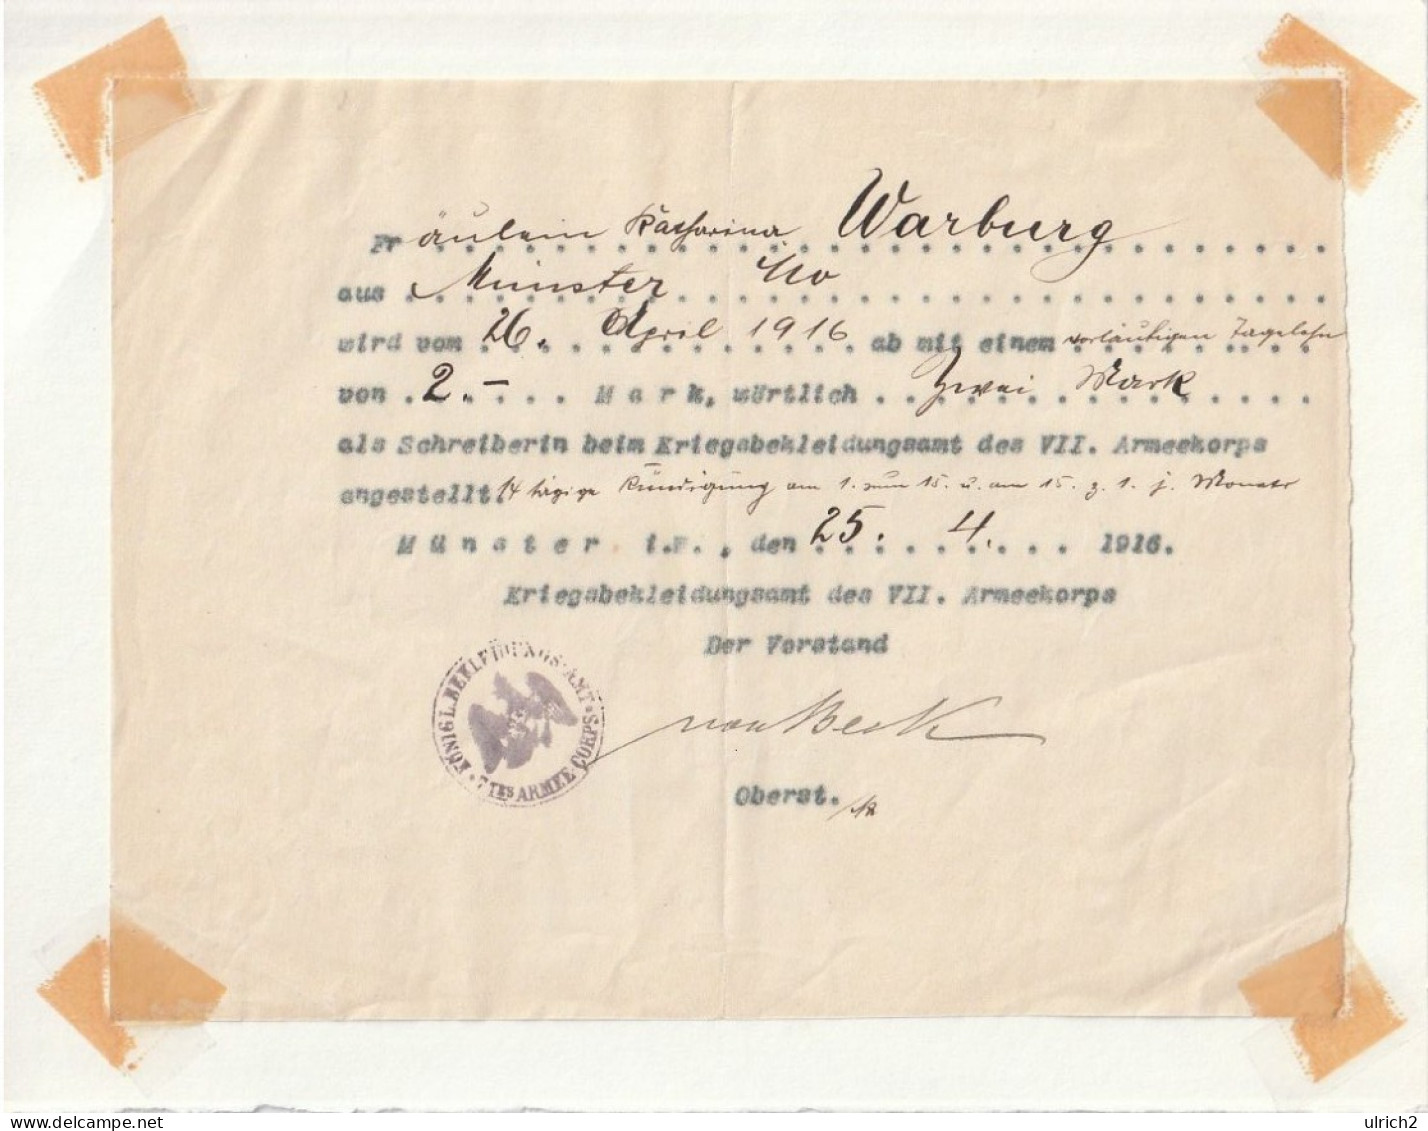 Fräulein Katharina Warburg
aus Münster
wird vom 26. April 1916 ab mit einem vorläufigen Tagelohn
von 2.- Mark, wörtlich Zwei Mark
als Schreiberin beim Kriegsbekleidungsamt des VII. Armeekorps
angestellt. 14 tägige Kündigung am 1. zum 15. u. am 15. z. 1. j. Monats
Münster i.W., den 25. 4. 1916.
Kriegsbekleidungsamt des VII. Armeekorps
Der Vorstand
KÖNIGL. BEKLEIDUNGS-AMT • 7TES ARMEE-CORPS •
von Beck
Oberst.
delcampe.net
ulrich2